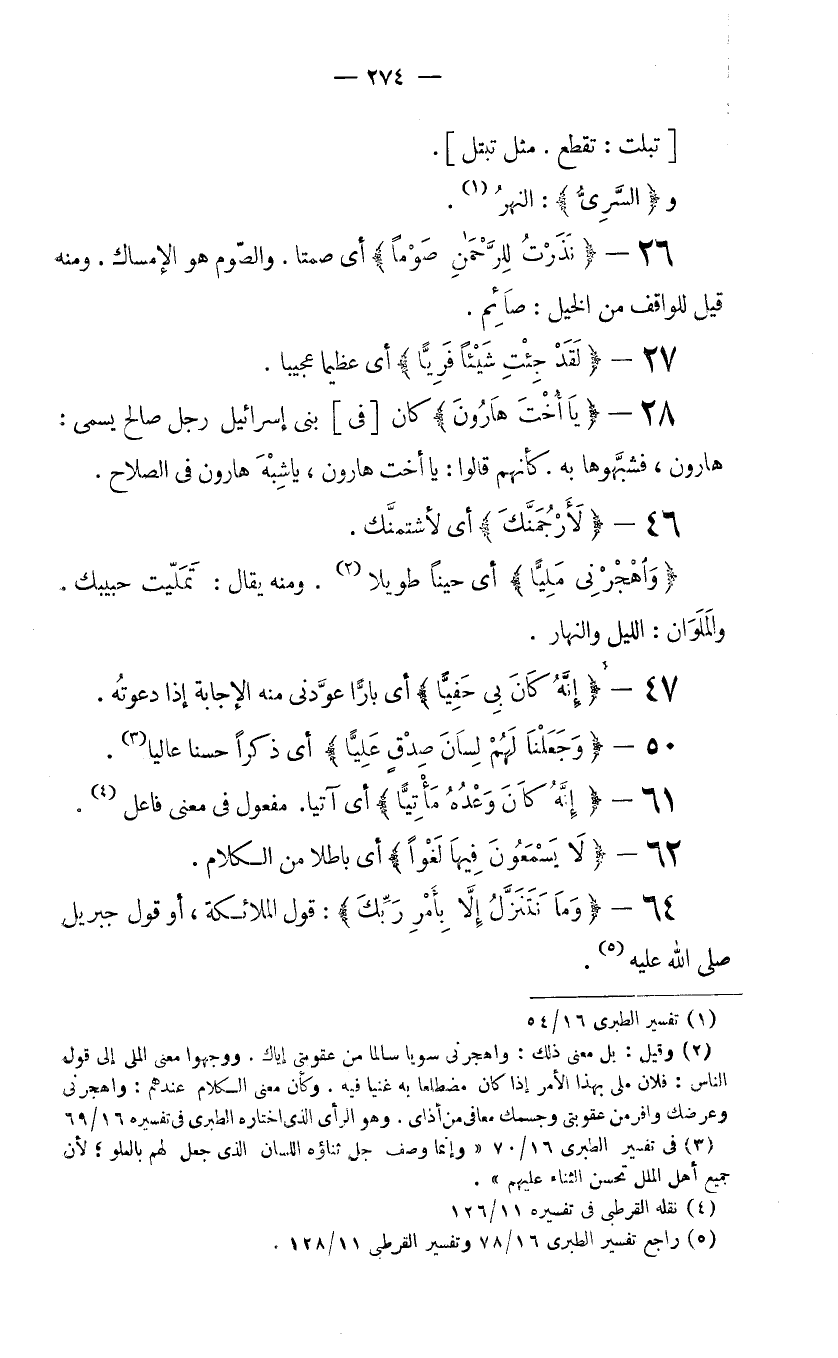 — ٢٧٤ —
[ تبلت : تقطع . مثل تبتل ] .
و ﴿ السَّرِىُّ ﴾ : النهرُ (١) .
٢٦ — ﴿ نَذَرْتُ لِلرَّحْمَٰنِ صَوْماً ﴾ أى صمتا . والصّوم هو الإمساك . ومنه
قيل للواقف من الخيل : صَائِم .
٢٧ — ﴿ لَقَدْ جِئْتِ شَيْئاً فَرِيًّا ﴾ أى عظيما عجيبا .
٢٨ — ﴿ يَا أُخْتَ هَارُونَ ﴾ كان [ فى ] بنى إسرائيل رجل صالح يسمى :
هارون ، فشبَّهوها به . كأنهم قالوا : يا أخت هارون ، ياشِبْهَ هارون فى الصلاح .
٤٦ — ﴿ لَأَرْجُمَنَّكَ ﴾ أى لأشتمنَّك .
﴿ وَٱهْجُرْنِى مَلِيًّا ﴾ أى حيناً طويلا (٢) . ومنه يقال : تَمَلّيت حبيبك .
والمَلَوَان : الليل والنهار .
٤٧ — ﴿ إِنَّهُ كَانَ بِى حَفِيًّا ﴾ أى بارًّا عوَّدنى منه الإجابة إذا دعوتُه .
٥٠ — ﴿ وَجَعَلْنَا لَهُمْ لِسَانَ صِدْقٍ عَلِيًّا ﴾ أى ذكراً حسنا عاليا (٣) .
٦١ — ﴿ إِنَّهُ كَانَ وَعْدُهُ مَأْتِيًّا ﴾ أى آتيا. مفعول فى معنى فاعل (٤) .
٦٢ — ﴿ لَا يَسْمَعُونَ فِيهَا لَغْواً ﴾ أى باطلا من الكلام .
٦٤ — ﴿ وَمَا نَتَنَزَّلُ إِلَّا بِأَمْرِ رَبِّكَ ﴾ : قول الملائكة ، أو قول جبريل
صلى الله عليه (٥) .
(١) تفسير الطبرى ١٦/٥٤
(٢) وقيل : بل معنى ذلك : واهجرنى سويا سالما من عقوبتى إياك . ووجهوا معنى الملى إلى قول
الناس : فلان ملى بهذا الأمر إذا كان مضطلعا به غنيا فيه . وكأن معنى الكلام عندهم : واهجرنى
وعرضك وافر من عقوبتى وجسمك معافى من أذاى . وهو الرأى الذى اختاره الطبرى فى تفسيره ١٦/٦٩
(٣) فى تفسير الطبرى ١٦/٧٠ « وإنما وصف جل ثناؤه اللسان الذى جعل لهم بالعلو ؛ لأن
جميع أهل الملل تحسن الثناء عليهم » .
(٤) نقله القرطبى فى تفسيره ١١/١٢٦
(٥) راجع تفسير الطبرى ١٦/٧٨ وتفسير القرطبى ١١/١٢٨ .